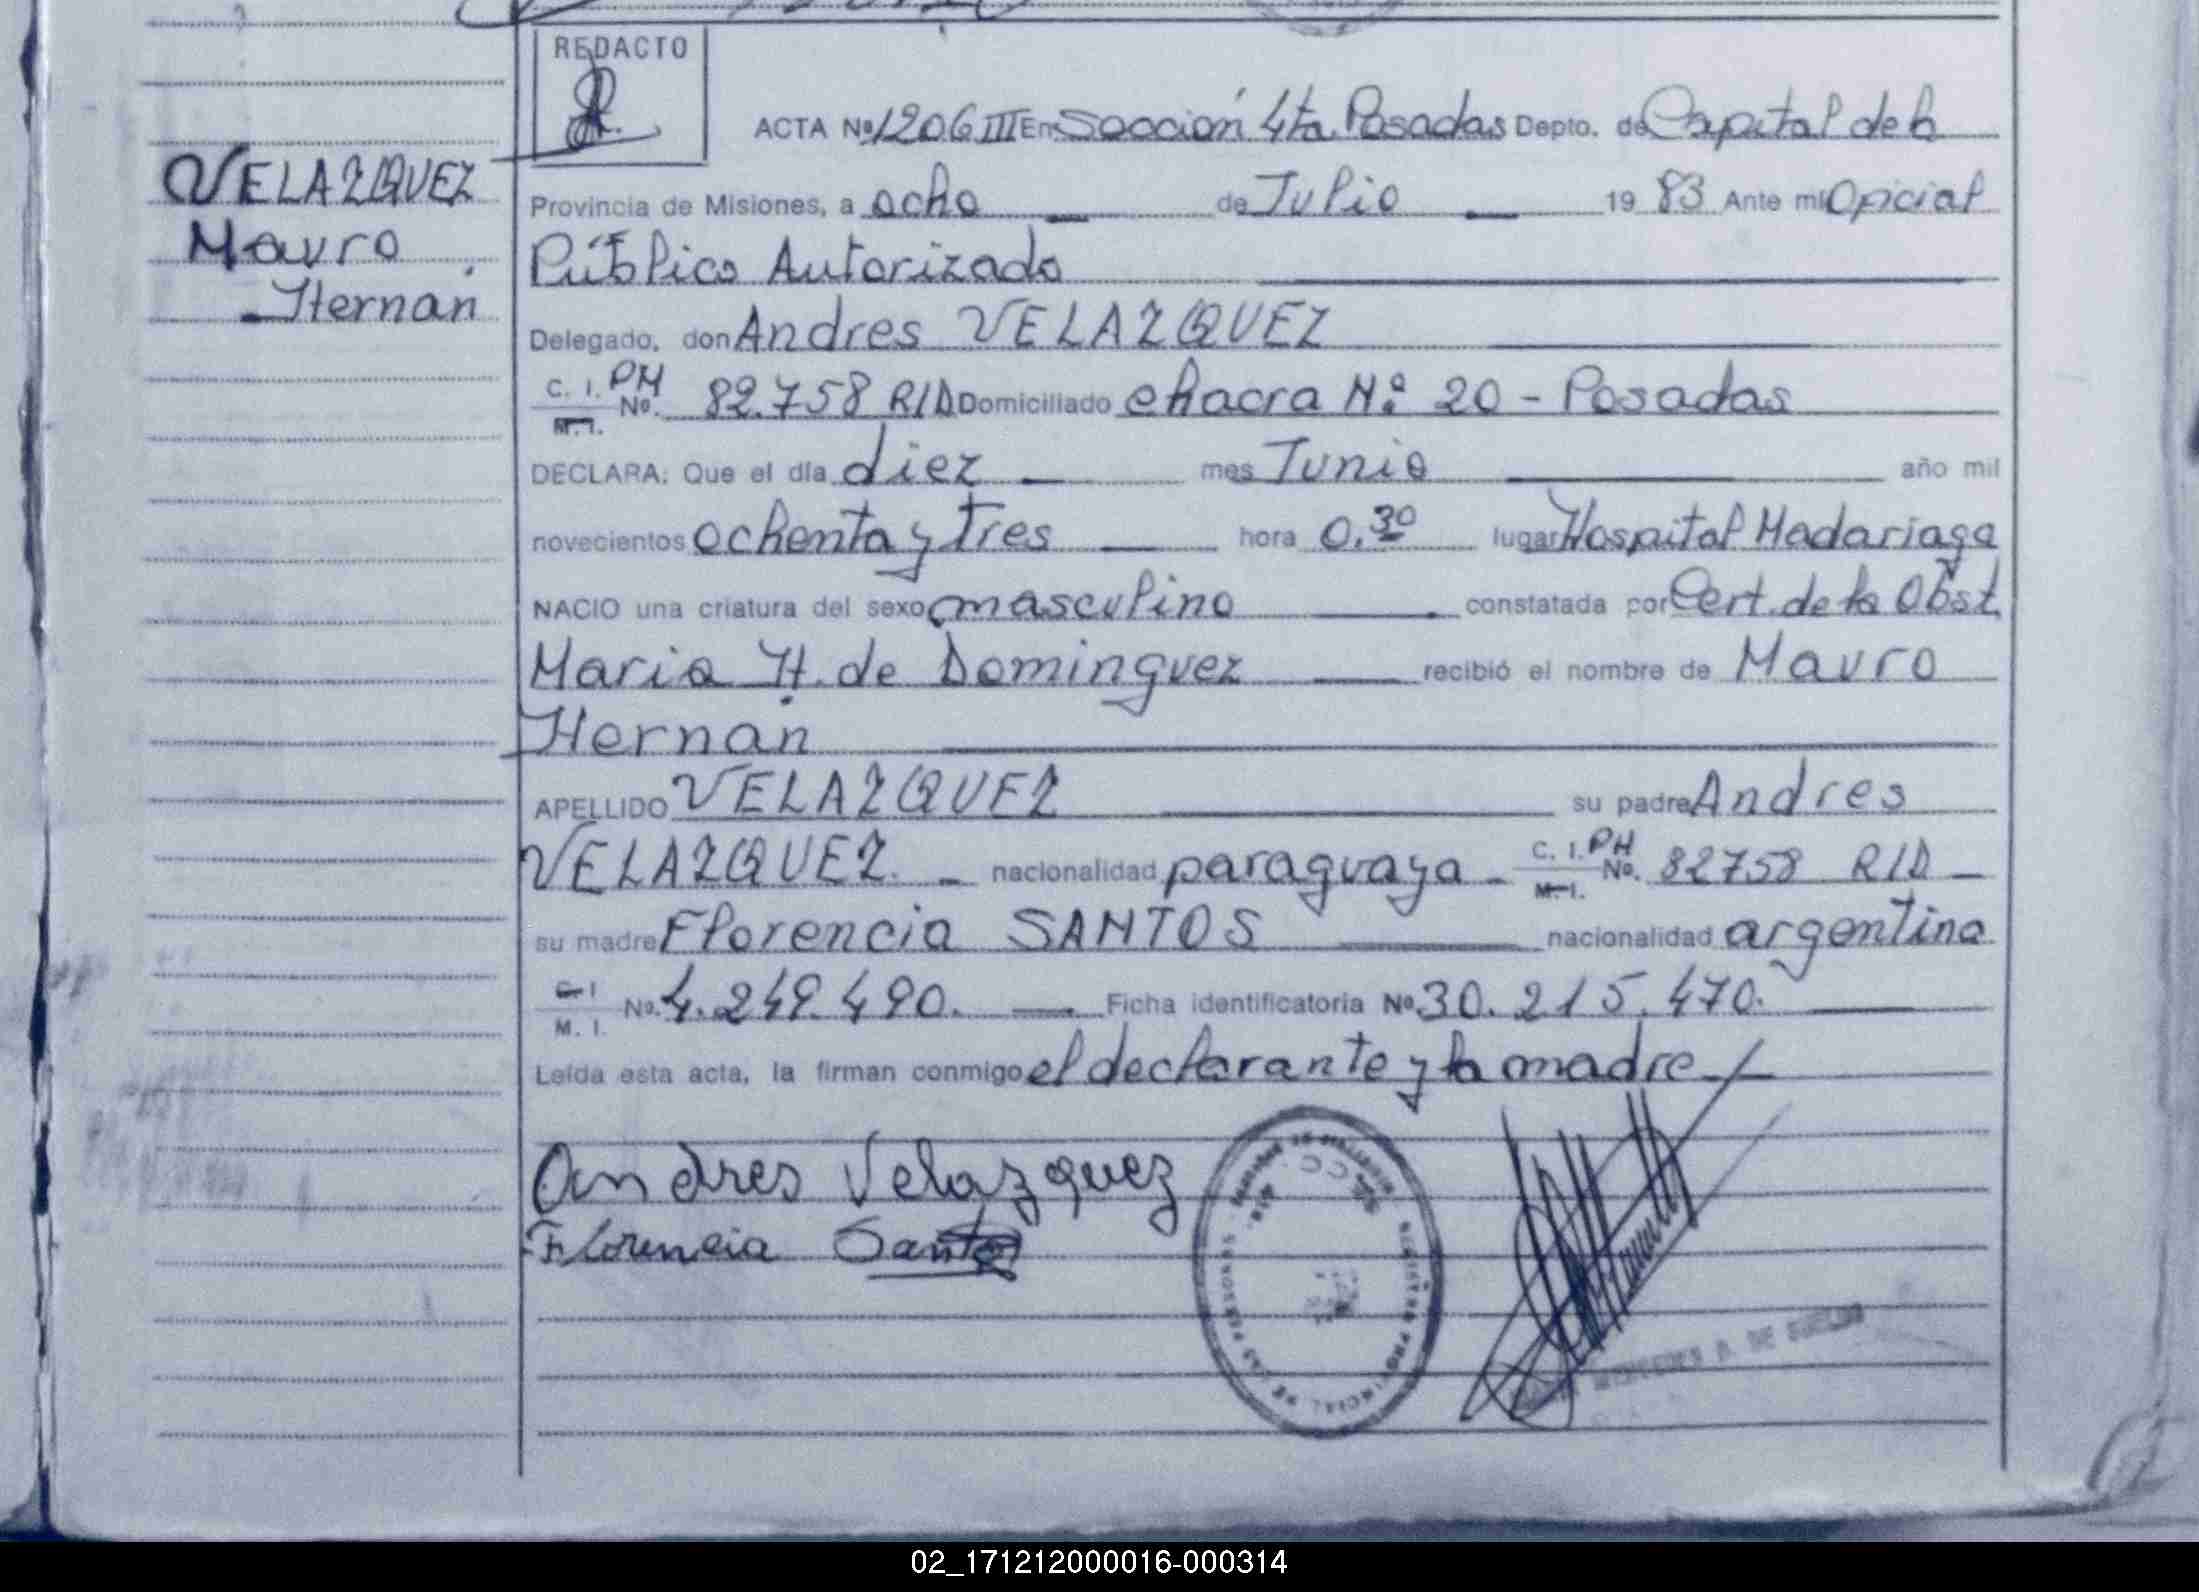 REDACTO
ACTA Nº 1206 III En Sección 4ta Posadas Depto. de Capital de la
VELAZQUEZ
Mauro
Hernán
Provincia de Misiones, a ocho de Julio 1983 Ante mí Oficial
Público Autorizado
Delegado, don Andres VELAZQUEZ
C. I. PM
M. I. Nº. 82.758 RID Domiciliado chacra Nº 20 - Posadas
DECLARA: Que el día diez mes Junio año mil
novecientos ochenta y tres hora 0.30 lugar Hospital Madariaga
NACIO una criatura del sexo masculino constatada por Cert. de la Obst.
Maria H. de Dominguez recibió el nombre de Mauro
Hernán
APELLIDO VELAZQUEZ su padre Andres
VELAZQUEZ. nacionalidad paraguaya C. I. PM
M. I. Nº. 82758 RID
su madre Florencia SANTOS nacionalidad argentina
C. I
M. I. Nº. 4.249.490. Ficha identificatoria Nº 30.215.470.
Leída esta acta, la firman conmigo el declarante y la madre
Andres Velazquez
Florencia Santos
REGISTRO PROVINCIAL DE LAS PERSONAS
DE
02_171212000016-000314